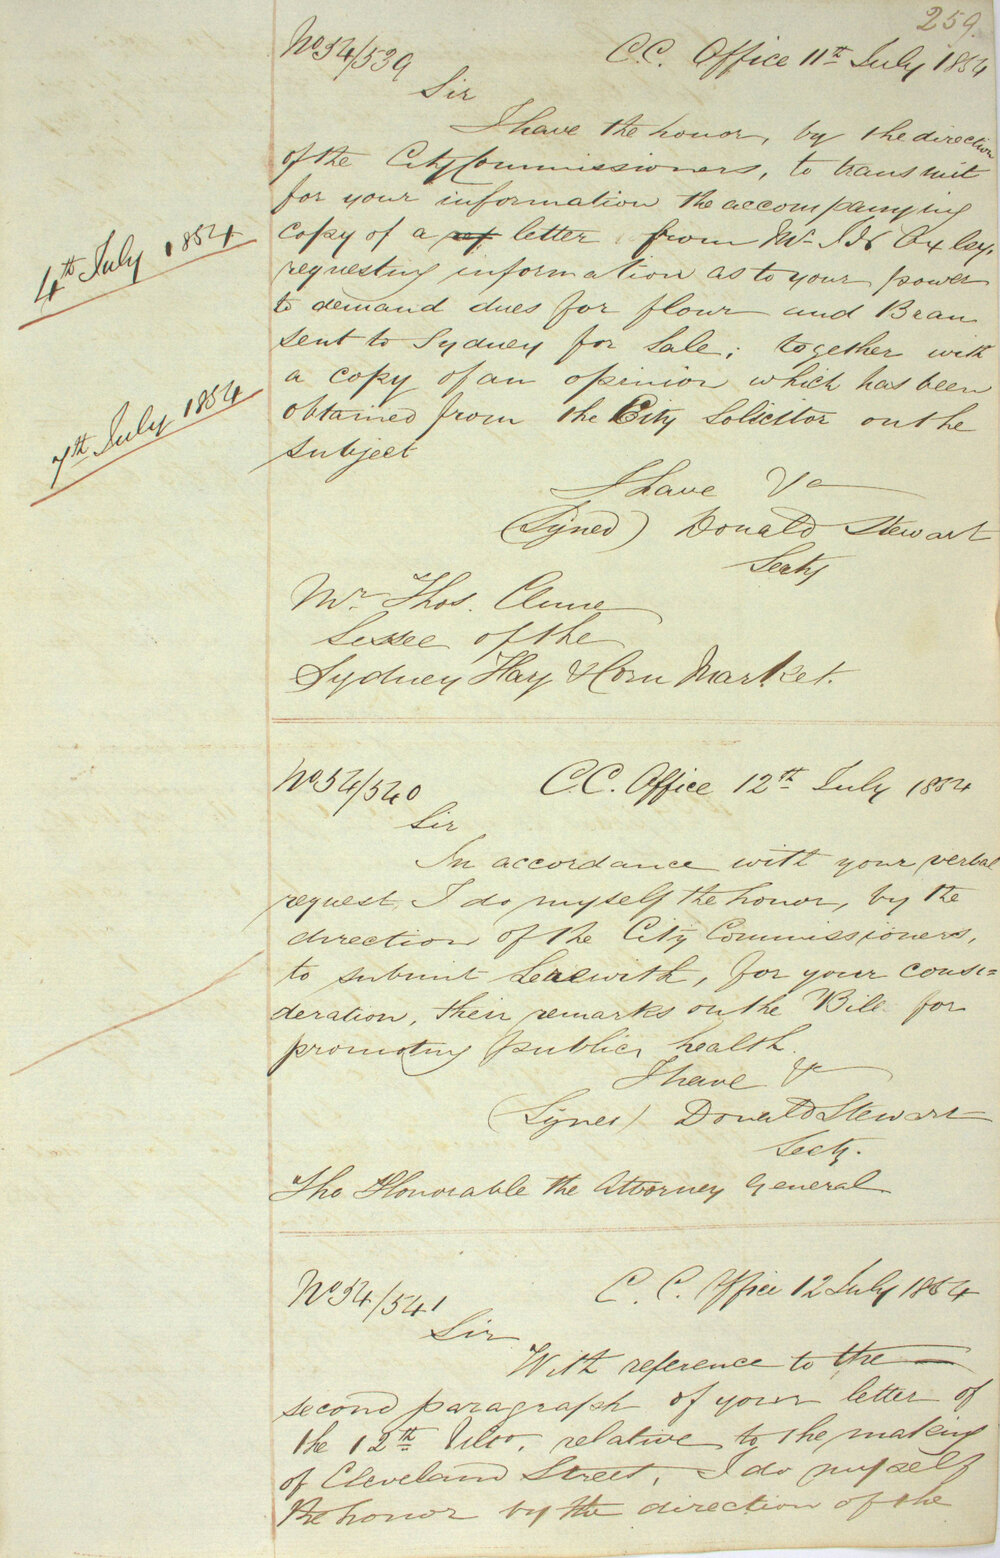 259.
No 54/539 C.C. Office 11th July 1854
Sir
I have the honor, by the direction
of the City Commissioners, to transmit
for your information the accompanying
copy of a letter from Mr
requesting information as to your power
to demand dues for flour and Bran
sent to Sydney for Sale; together with
a copy of an opinion which has been
obtained from the City Solicitor on the
subject
I have &c
(Signed) Donald Stewart
Secty
Mr Thos. Clune
Lessee of the
Sydney Hay & Corn Market.
4th July 1854
7th July 1854
No 54/540 C.C. Office 12th July 1854
Sir
In accordance with your verbal
request, I do myself the honor, by the
direction of the City Commissioners,
to submit herewith, for your consi=
deration, their remarks on the Bill for
promoting public health.
I have &c
(Signed) Donald Stewart
Secty.
The Honorable the Attorney General
No 54/541 C. C. Office 12 July 1854
Sir
With reference to the
second paragraph of your letter of
the 12th Ulto. relative to the making
of Cleveland Street, I do myself
the honor by the direction of the